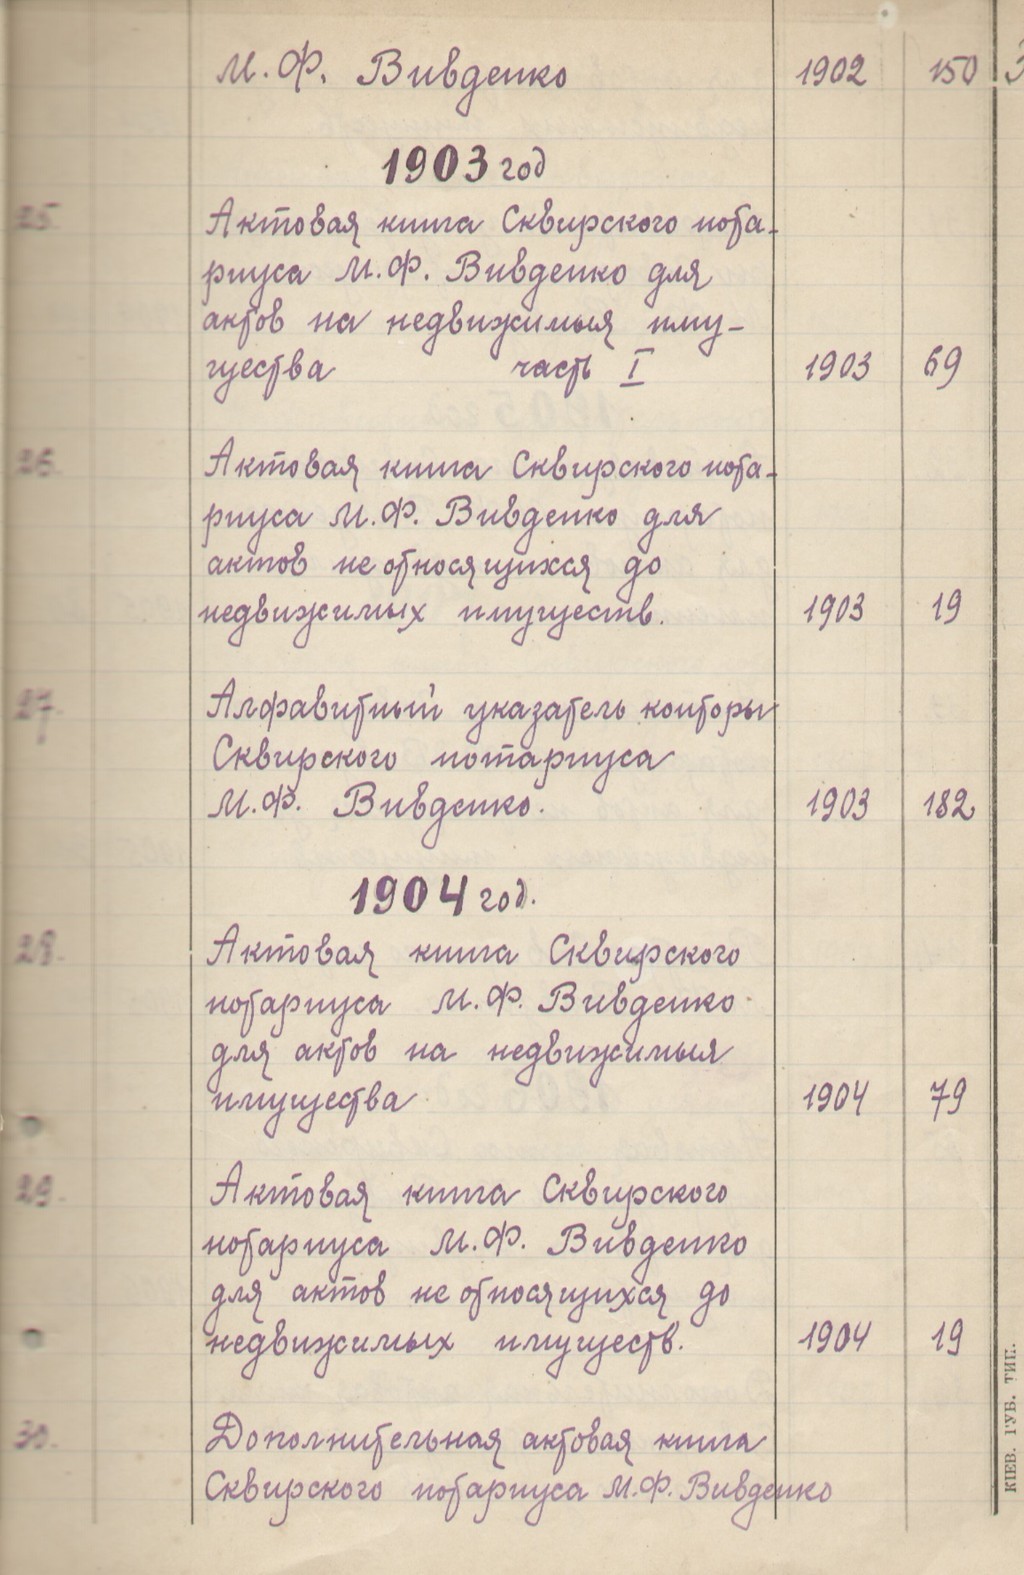 М. Ф. Вивденко 1902 150
1903 год
25. Актовая книга Сквирского нота-
риуса М. Ф. Вивденко для
актов на недвижимыя иму-
щества часть I 1903 69
26. Актовая книга Сквирского нота-
риуса М. Ф. Вивденко для
актов не относящихся до
недвижимых имуществ. 1903 19
27. Алфавитный указатель конторы
Сквирского нотариуса
М. Ф. Вивденко. 1903 182
1904 год.
28. Актовая книга Сквирского
нотариуса М. Ф. Вивденко
для актов на недвижимыя
имущества 1904 79
29. Актовая книга Сквирского
нотариуса М. Ф. Вивденко
для актов не относящихся до
недвижимых имуществ. 1904 19
30. Дополнительная актовая книга
Сквирского нотариуса М. Ф. Вивденко
КІЕВ. ГУБ. ТИП.